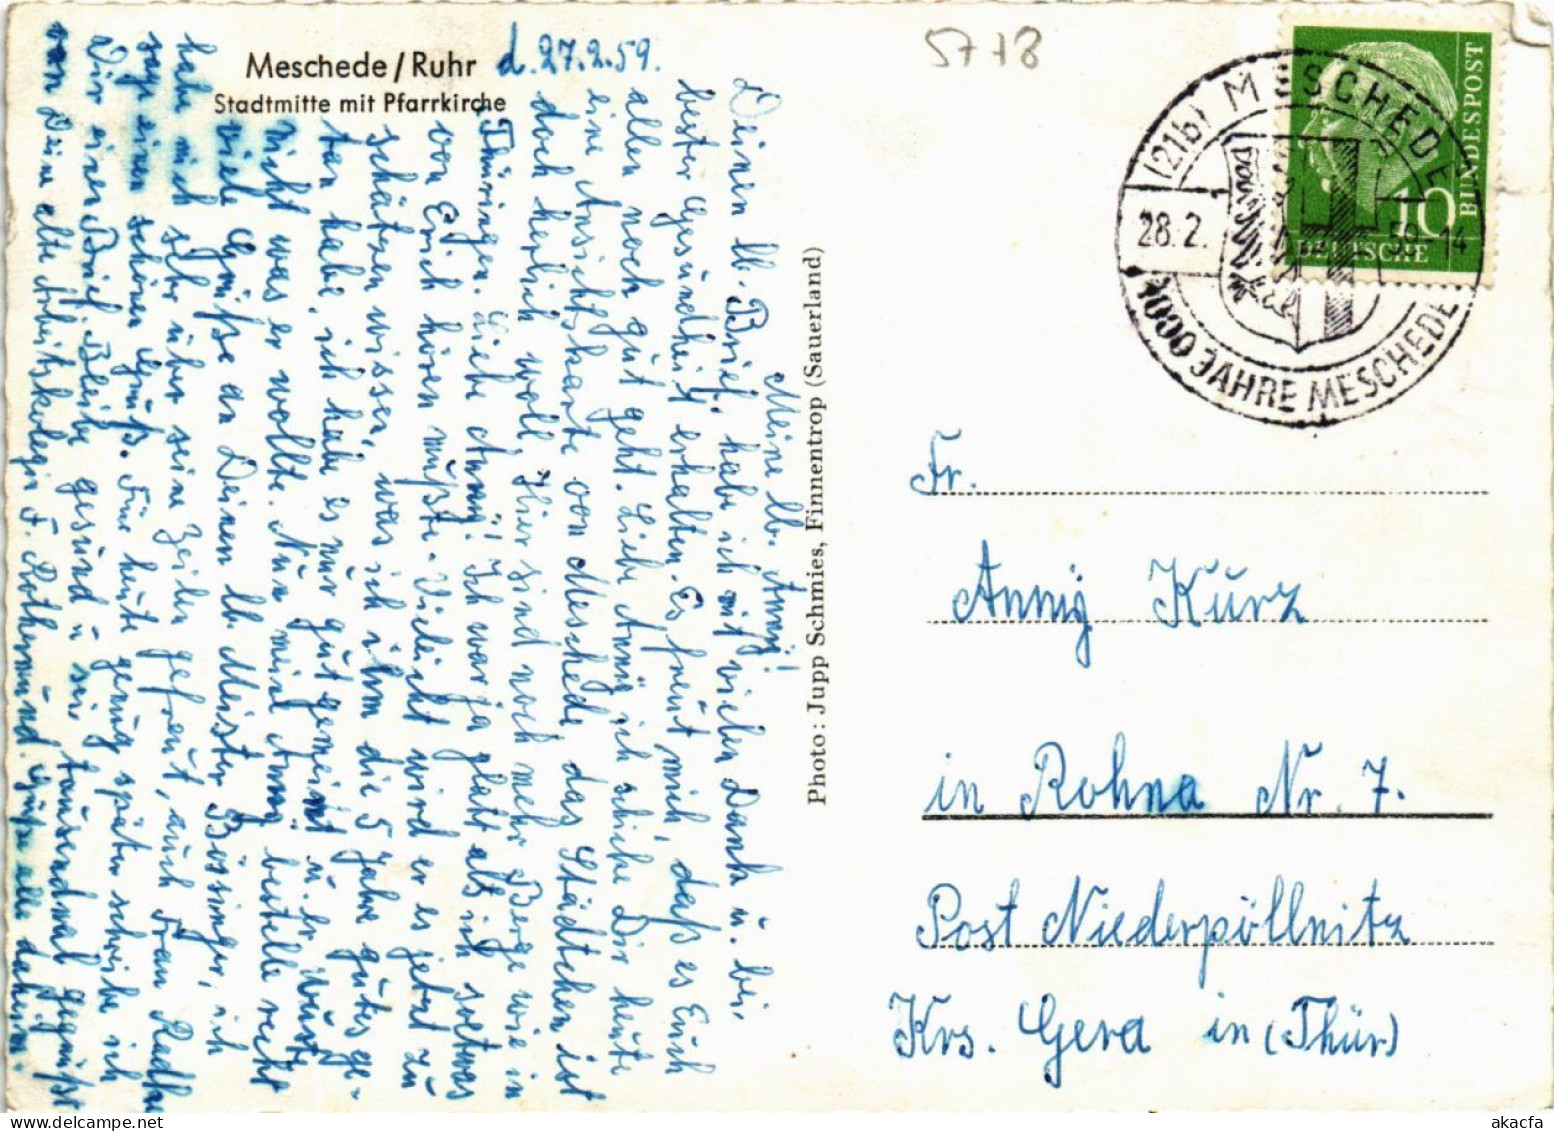 Meschede/Ruhr
Stadtmitte mit Pfarrkirche
d. 27.2.59.
5718
Meine lb. Anny!
Deinen lb. Brief habe ich mit vielen Dank u. bei
bester Gesundheit erhalten. Es freut mich, daß es Euch
allen noch gut geht. Liebe Anny ich schicke Dir heute
eine Ansichtskarte von Meschede, das Städtchen ist
doch herlich woll, Hier sind noch mehr Berge wie in
Thüringen. Liebe Anny! Ich war ja platt als ich sowas
von Erich hören mußte. Vieleicht wird er es jetzt zu
schätzen wissen, was ich ihm die 5 Jahre gutes ge-
tan habe, ich habe es nur gut gemeint u. er wußte
nicht was er wollte. Nun meine Anny bestelle recht
viele Grüße an Deinen lb. Meister Bössinger, ich
habe mich sehr über seine Zeilen gefreut, auch Frau
sage einen schönen Gruß. Für heute genug später schreibe ich
Dir einen Brief. Bleibe gesund u sei tausendmal gegrüßt
von Deine alte Arbeitskolegin F. Rothermund. Grüße alle daheim.
Photo: Jupp Schmies, Finnentrop (Sauerland)
(21b) MESCHEDE
28. 2. 59-14
1000 JAHRE MESCHEDE
10
DEUTSCHE
BUNDESPOST
Fr.
Anny Kurz
in Rohna Nr. 7.
Post Niederpöllnitz
Krs. Gera in (Thür)
© www.delcampe.net
akacfa